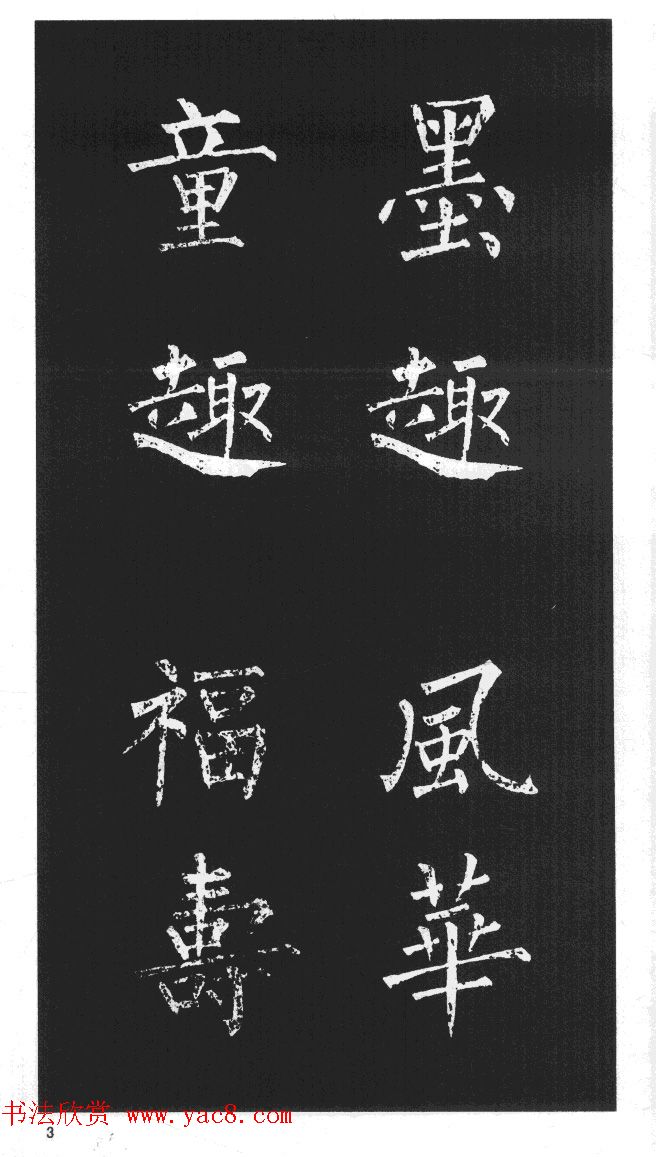 墨趣
童趣
風華
福壽
书法欣赏 www.yac8.com
3